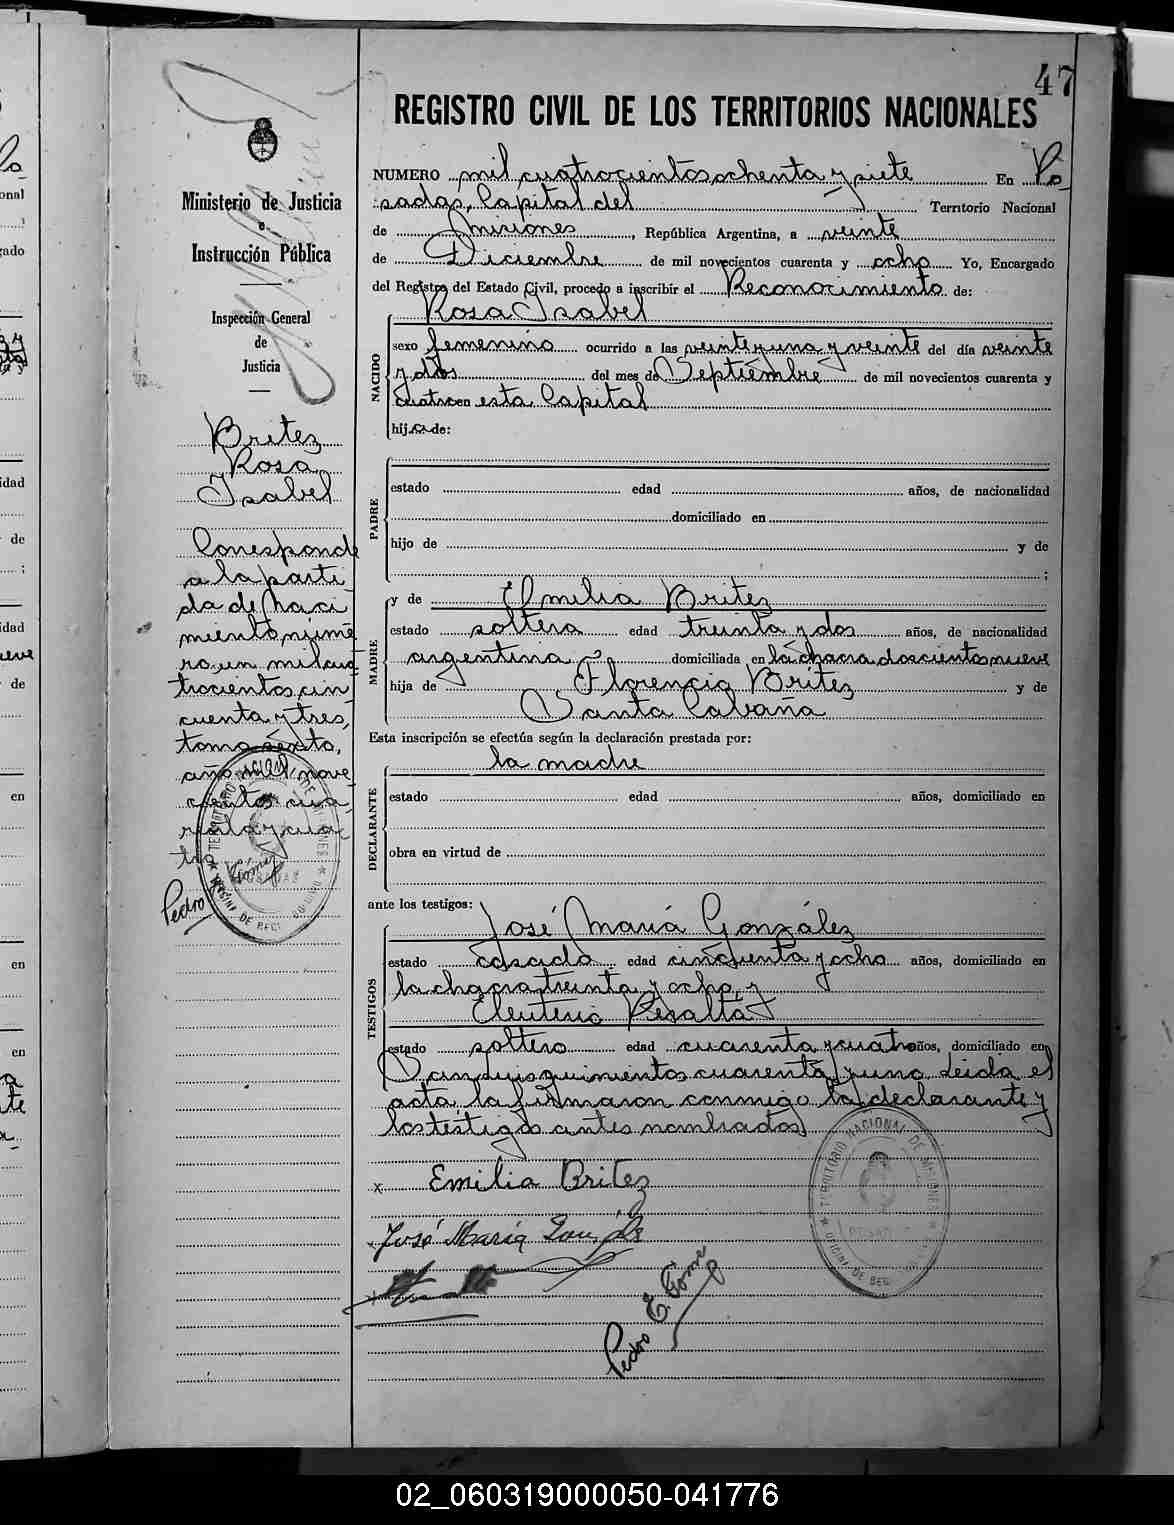 47
REGISTRO CIVIL DE LOS TERRITORIOS NACIONALES
Ministerio de Justicia
e
Instrucción Pública
Inspección General
de
Justicia
Britez
Rosa
Isabel
Corresponde
a la parti
da de naci
miento núme
ro un mil cua
trocientos cin
cuenta y tres,
tomo sexto,
año mil nove
cientos cua
renta y cua
tro
Pedro
NUMERO mil cuatrocientos ochenta y siete En Po
sadas, Capital del Territorio Nacional
de Misiones, República Argentina, a veinte
de Diciembre de mil novecientos cuarenta y ocho Yo, Encargado
del Registro del Estado Civil, procedo a inscribir el Reconocimiento de:
Rosa Isabel
NACIDO
sexo femenino ocurrido a las veinte y una y veinte del día veinte
y dos del mes de Septiembre de mil novecientos cuarenta y
cuatro en esta Capital
hija de:
PADRE
estado edad años, de nacionalidad
domiciliado en
hijo de y de
;
MADRE
y de Emilia Britez
estado soltera edad treinta y dos años, de nacionalidad
argentina domiciliada en la chacra doscientos nueve
hija de Florencio Britez y de
Santa Cabaña
Esta inscripción se efectúa según la declaración prestada por:
la madre
DECLARANTE
estado edad años, domiciliado en
obra en virtud de
ante los testigos:
José María González
TESTIGOS
estado casado edad cincuenta y ocho años, domiciliado en
la chacra treinta y ocho, y
Eleuterio Peralta
estado soltero edad cuarenta y cuatro años, domiciliado en
San Luis quinientos cuarenta y uno Leida el
acta, la firmaron conmigo la declarante y
los testigos antes nombrados
x Emilia Britez
José María
Pedro E. Gome
TERRITORIO NACIONAL DE MISIONES
POSADAS
02_060319000050-041776